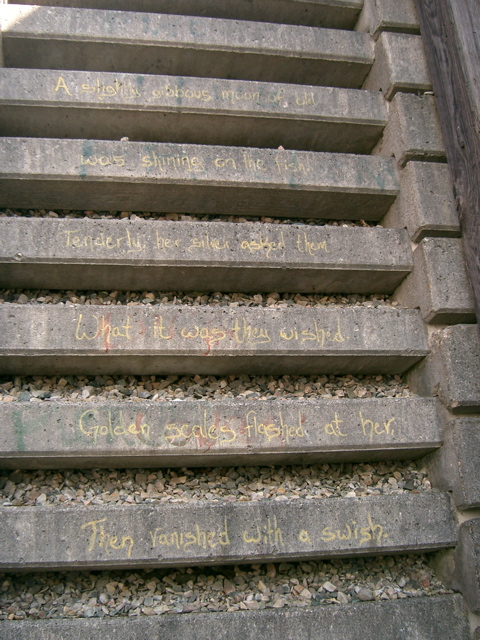 A slightly gibbous moon of old
was shining on the fish.
Tenderly, her silver asked them
What it was they wished.
Golden scales flashed at her,
Then vanished with a swish.